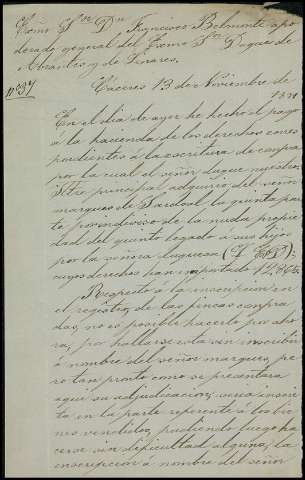 Exmo Sr. Dn. Francisco Belmonte apo
derado general del Exmo Sr. Duque de
Abrantes y de Linares.
nº 37
Cáceres 13 de Noviembre de
En el dia de ayer he hecho el pago
á la hacienda de los derechos corres
pondientes á la escritura de compra
por la cual el señor duque nuestro
Iltre principal adquirió del señor
marques de Sardoal la quinta par
te proindiviso de la nuda propie
dad del quinto legado a sus hijos
por la señora duquesa
cuyos derechos han importado
Respecto á la inscripcion en
el registro de las fincas compra
das, no es posible hacerlo por aho
ra, por hallarse esta sin inscribir
á nombre del señor marques, pe
ro tan pronto como se presentara
aqui su adjudicacion, seria inscri
ta en la parte referente á los bie
nes vendidos, pudiendo luego ha
cerse sin dificultad alguna, la
inscripcion á nombre del señor